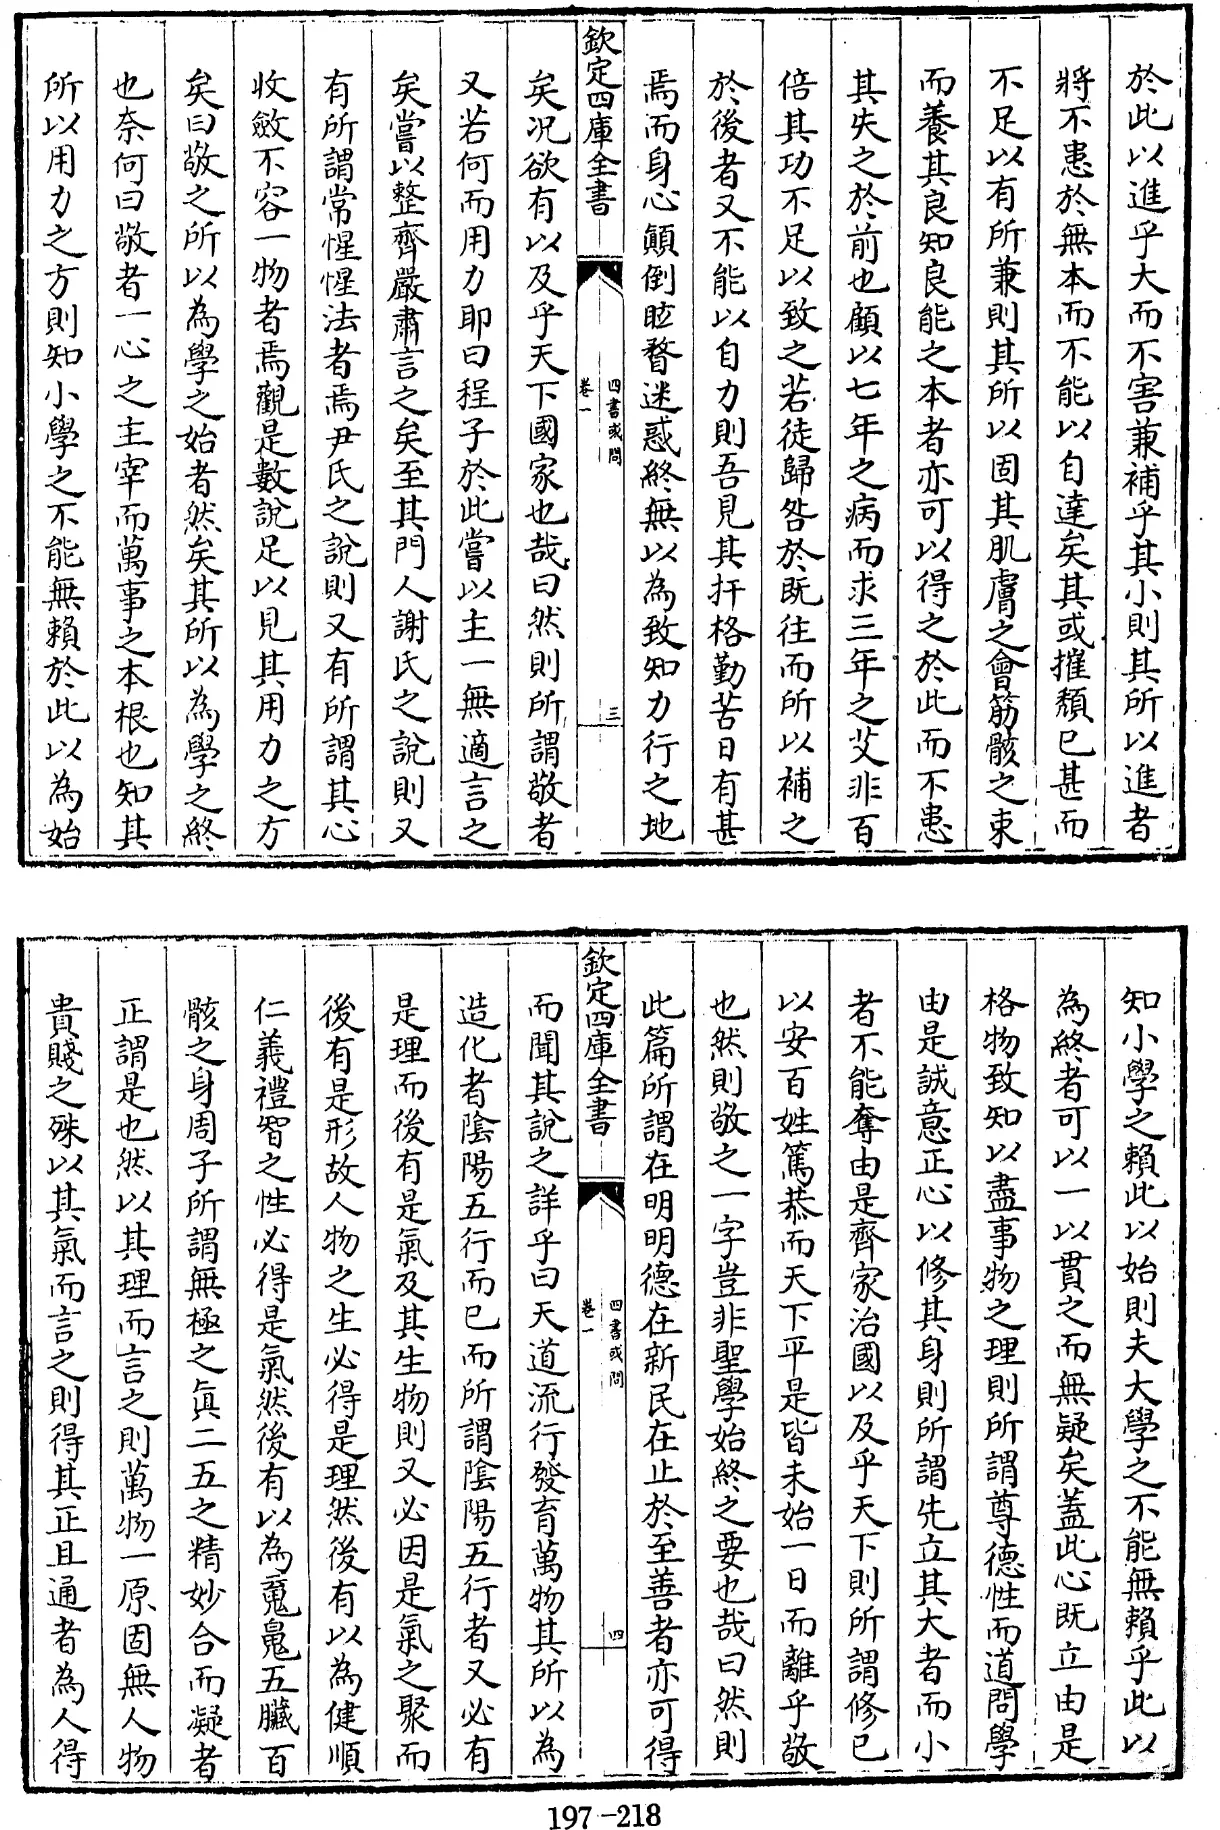 於此以進乎大而不害兼補乎其小則其所以進者
將不患於無本而不能以自達矣其或摧頽已甚而
不足以有所兼則其所以固其肌膚之會筋骸之束
而養其良知良能之本者亦可以得之於此而不患
其失之於前也顧以七年之病而求三年之艾非百
倍其功不足以致之若徒歸咎於既往而所以補之
於後者又不能以自力則吾見其扞格勤苦日有甚
焉而身心顛倒眩瞀迷惑終無以為致知力行之地
欽定四庫全書
四書或問
卷一
三
矣況欲有以及乎天下國家也哉曰然則所謂敬者
又若何而用力耶曰程子於此嘗以主一無適言之
矣嘗以整齊嚴肅言之矣至其門人謝氏之說則又
有所謂常惺惺法者焉尹氏之說則又有所謂其心
收斂不容一物者焉觀是數說足以見其用力之方
矣曰敬之所以為學之始者然矣其所以為學之終
也奈何曰敬者一心之主宰而萬事之本根也知其
所以用力之方則知小學之不能無賴於此以為始
知小學之賴此以始則夫大學之不能無賴乎此以
為終者可以一以貫之而無疑矣蓋此心既立由是
格物致知以盡事物之理則所謂尊德性而道問學
由是誠意正心以修其身則所謂先立其大者而小
者不能奪由是齊家治國以及乎天下則所謂修已
以安百姓篤恭而天下平是皆未始一日而離乎敬
也然則敬之一字豈非聖學始終之要也哉曰然則
此篇所謂在明明德在新民在止於至善者亦可得
欽定四庫全書
四書或問
卷一
四
而聞其說之詳乎曰天道流行發育萬物其所以為
造化者陰陽五行而已而所謂陰陽五行者又必有
是理而後有是氣及其生物則又必因是氣之聚而
後有是形故人物之生必得是理然後有以為健順
仁義禮智之性必得是氣然後有以為䰟魄五臟百
骸之身周子所謂無極之真二五之精妙合而凝者
正謂是也然以其理而言之則萬物一原固無人物
貴賤之殊以其氣而言之則得其正且通者為人得
197-218